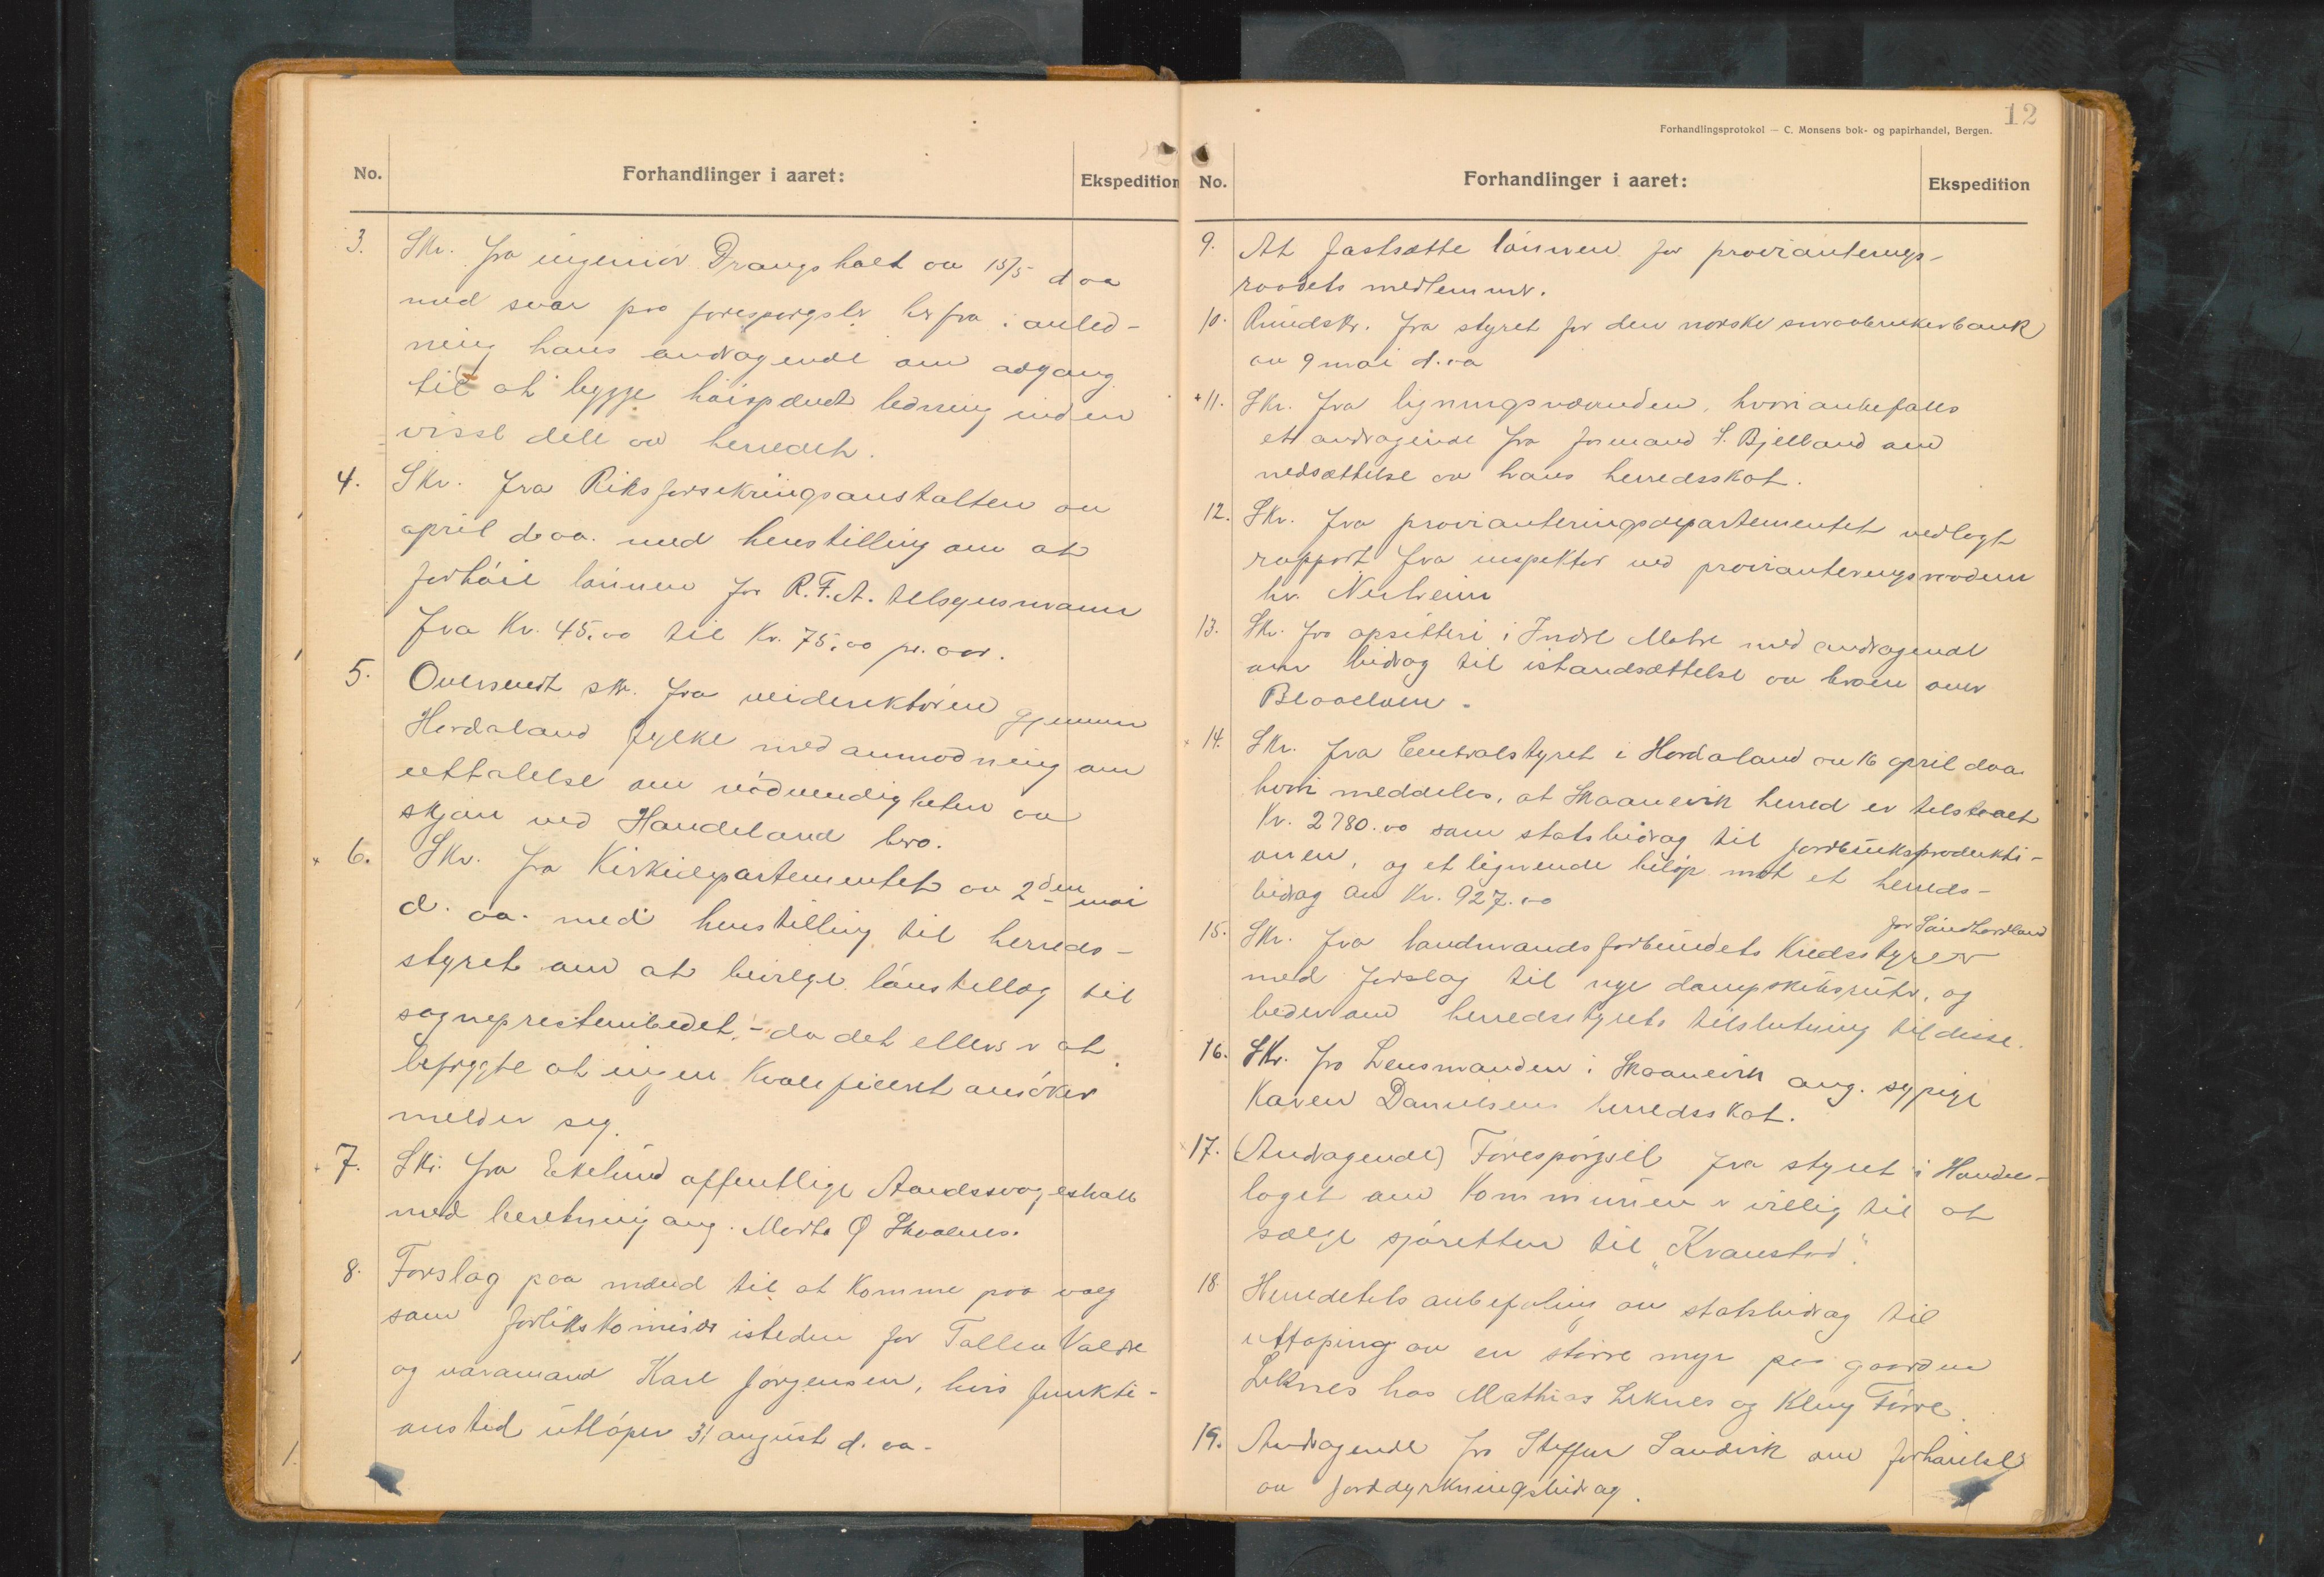 No.
Forhandlinger i aaret:
Ekspedition
3. Skr. fra ingeniör Drangsholt av 15/5 d aa
med svar paa forespørgsler herfra i anled-
ning hans andragende om adgang
til at bygge höispændt ledning inden
visse dele av herredet.
4. Skr. fra Riksforsikringsanstalten av
april d.aa. med henstilling om at
forhöie lönnen for R.F.A. tilsynsmann
fra Kr. 45.00 til Kr. 75.00 pr. aar.
5. Oversendt skr. fra veidirektören gjennem
Hordaland fylke med anmodning om
uttalelse om nödvendigheten av
skjön ved Handeland bro.
× 6. Skr. fra Kirkedepartementet av 2den mai
d. aa. med henstilling til herreds-
styret om at bevilge lönstillæg til
sogneprestembedet, - da det ellers er at
befrygte at ingen kvalificert ansöker
melder seg.
× 7. Skr. fra Ekelund offentlige Aandssvageskole
med beretning ang. Marta Ø Skaalnes.
8. Forslag paa mænd til at komme paa valg
som forlikskomisær isteden for Tollev Valdre
og varamand Karl Jørgensen, hvis funkti-
onstid utlöper 31 august d. aa.
12
Forhandlingsprotokol — C. Monsens bok- og papirhandel, Bergen.
No.
Forhandlinger i aaret:
Ekspedition
9. At fastsætte lönnen for provianterings-
raadets medlemmer.
10. Rundskr. fra styret for den norske smaabrukerbank
av 9 mai d. aa
× 11. Skr. fra ligningsnævnden, hvori anbefales
et andragende fra formand S. Bjelland om
nedsættelse av hans herredsskat.
12. Skr. fra provianteringsdepartementet vedlagt
rapport fra inspektør ved provianteringsraadene
hr. Nesheim
13. Skr. fra opsittere i Indre Matre med andragende
om bidrag til istandsættelse av broen over
Blaaelven.
× 14. Skr. fra Centralstyret i Hordaland av 16 april d aa
hvori meddeles, at Skaanevik herred er tilstaaet
Kr. 2780.00 som statsbidrag til jordbruksprodukti-
onen, og et lignende beløp mot et herreds-
bidrag av Kr. 927.00
for Söndhordland
15. Skr. fra landmandsforbundets Kredsstyrer
med forslag til nye dampskibsruter, og
beder om herredsstyrets tilslutning til disse.
16. Skr. fra Lensmanden i Skaanevik ang. sypige
Karen Danielsens herredsskat.
× 17. (Andragende) Forespörsel fra styret i Handel-
laget om Kommunen er villig til at
sælge sjöretten til "Kranstød".
18 Herredets anbefaling om statsbidrag til
uttaping av en större myr paa gaarden
Leknes hos Mathias Leknes og Förre.
19. Andragende fra Steffen Sandvik om forhöielse
av jorddyrkningsbidrag.